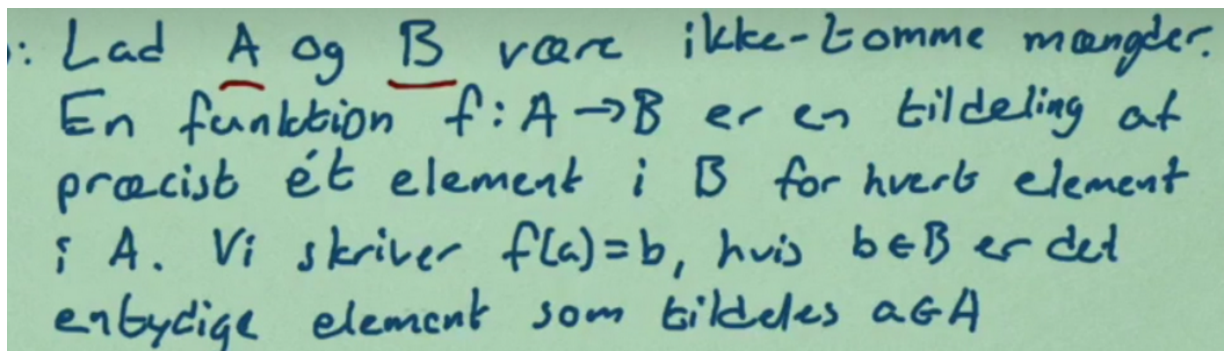 : Lad A og B være ikke-tomme mængder.
En funktion f: A → B er en tildeling af
præcist ét element i B for hvert element
i A. Vi skriver f(a) = b, hvis b ∈ B er det
entydige element som tildeles a ∈ A